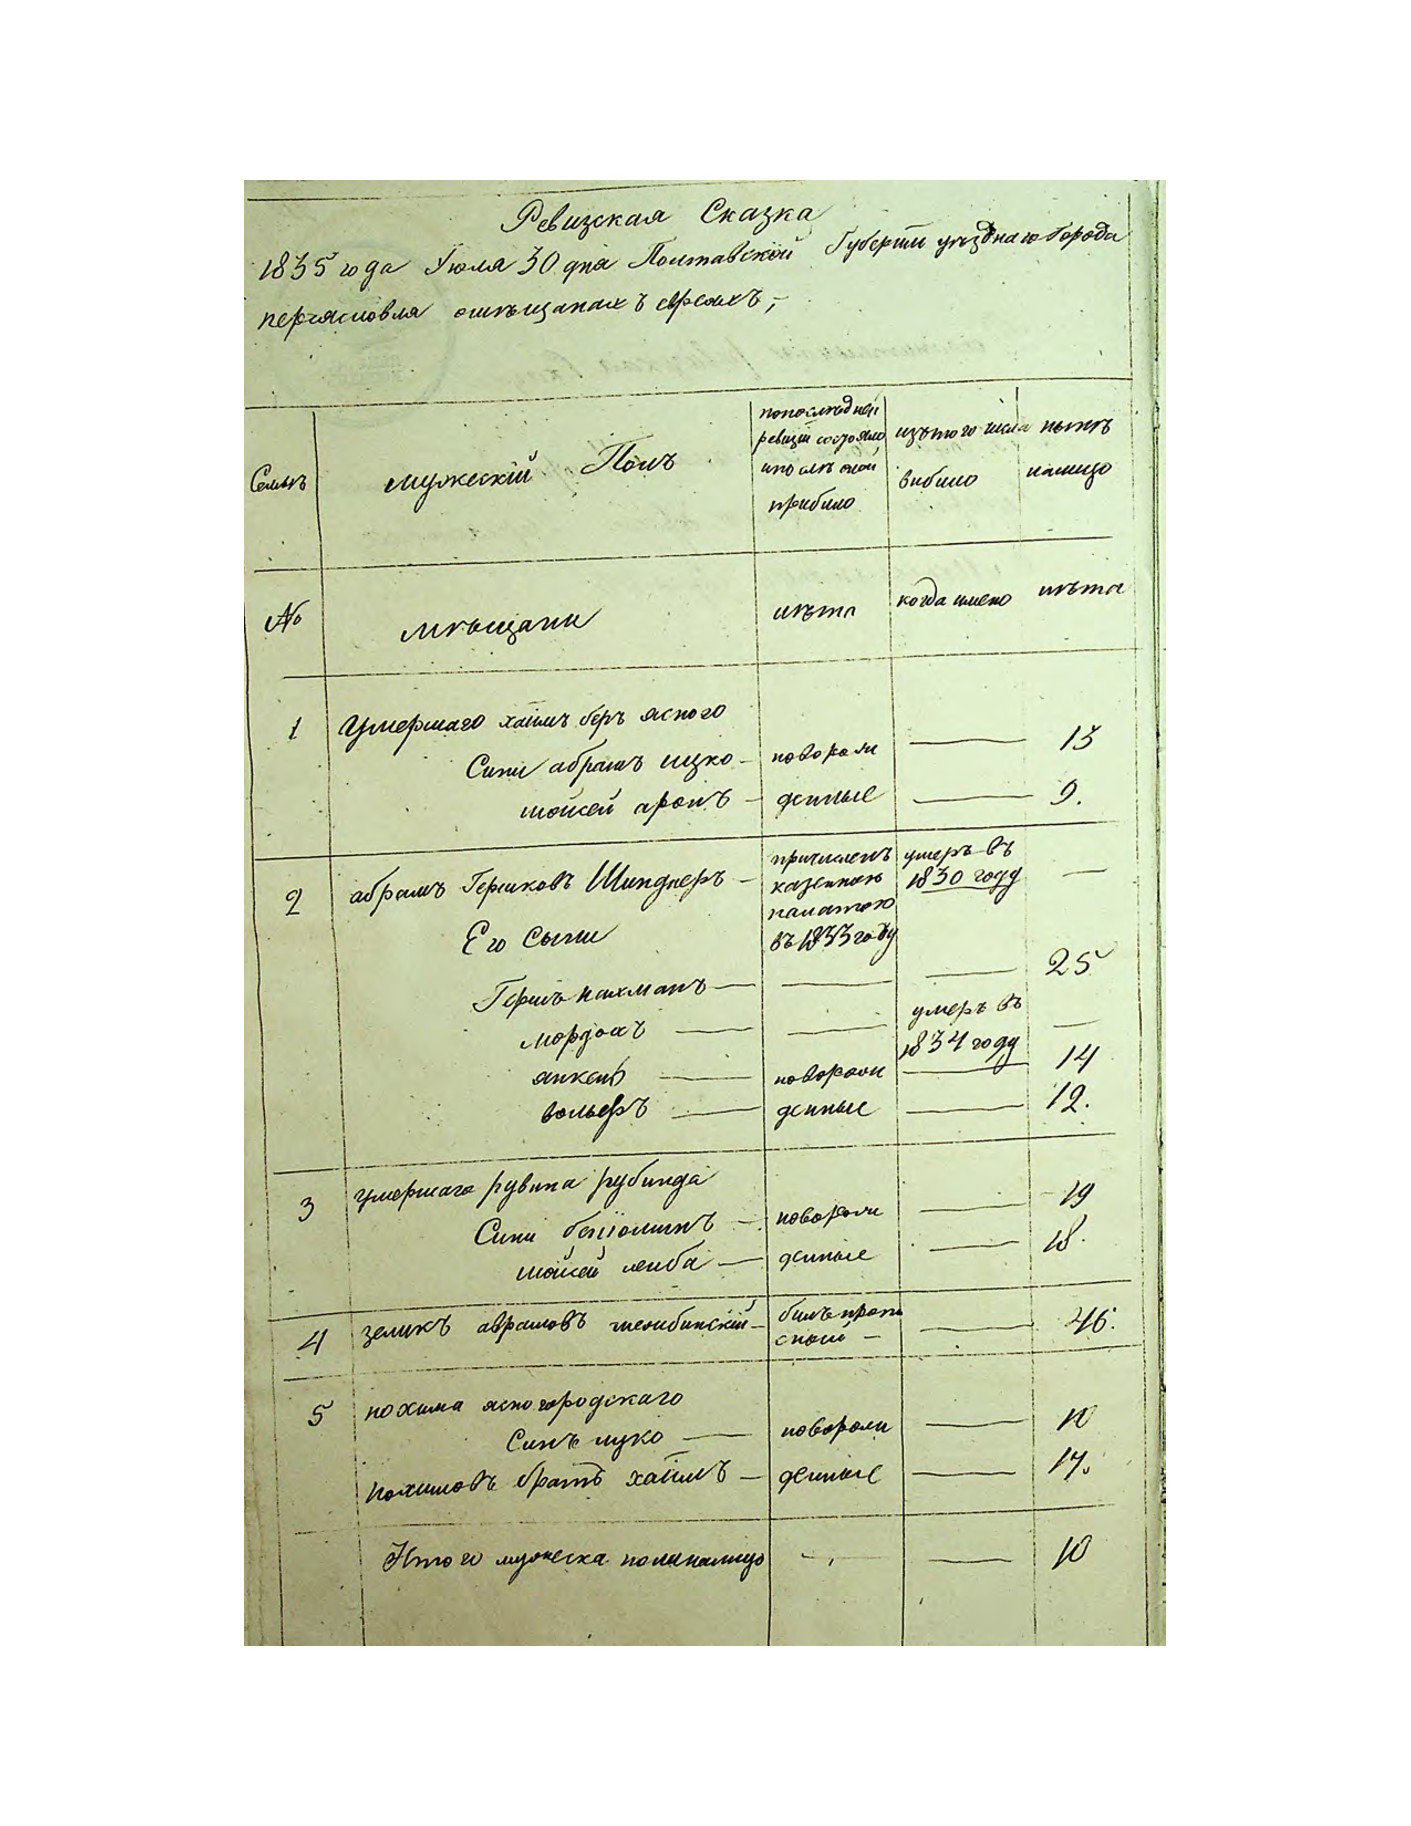 Ревизская Сказка
1835 года Июля 30 дня Полтавской Губернии уезднаго Города
переяславля омѣщанахъ евреяхъ,
Семьи
мужескій Полъ
попоследней
ревизіи состояло
ипослѣ оной
прибило
изътого числа
вибило
нынѣ
налицо
№
мѣщани
лѣта
когда имено
лѣта
1
Умершаго хаимъ беръ ясного
Сини абрамъ ицко
новорож
13
мойсей аронъ
денные
9.
2
абрамъ Гершковъ Шинднеръ
причисленъ
казенною
палатою
въ 1833 году
умеръ въ
1830 году
Его Сыни
Гершъ нахманъ
25
мордохъ
умеръ въ
1834 году
янкель
новорож
14
вольфъ
денные
12.
3
умершаго рувина рубинда
Сини беніоминъ
новорож
19
мойсей лейба
денные
18.
4
зеликъ аврамовъ
билъ пропи
сной
46.
5
нохима ясногородскаго
Синъ ицко
новорож
10
нохимовъ братъ хаимъ
денные
17.
Итого мужеска пола налицо
10